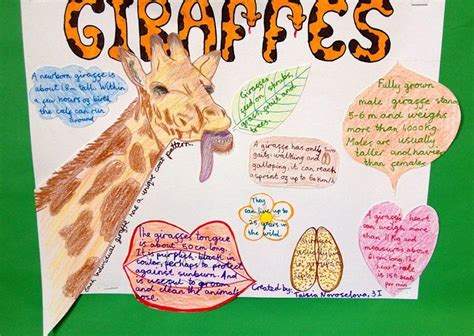 GIRAFFES
A newborn giraffe is
about 1.8m tall. Within
a few hours of birth
the calf can run
around
Giraffes
feed on shrubs,
fruit and
tree
Fully grown
male giraffe stand
5-6 m and weighs
more than 1000kg.
Males are usually
taller and heavier
than females.
A giraffe has only two
gaits: walking and
galloping, it can reach
a sprint of up to 60km/h.
Each individual giraffe has a unique coat pattern.
They can live up to
25 years in
the wild.
The giraffes tongue
is about 50cm long.
It is purplish-black in
colour, perhaps to protect
against sunburn. And
is useful to groom
and clean the animals
nose.
A giraffe's heart
can weigh more
than 11 kg and
measures about
61cm long. The
heart rate
is 150 beats
per min
Created by:
Taisia Novoselova, 3I